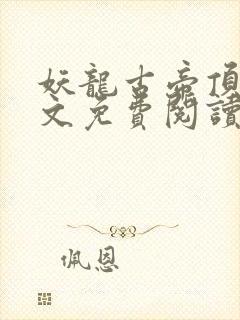 妖龍古帝頂
文免費閱讀
佩恩